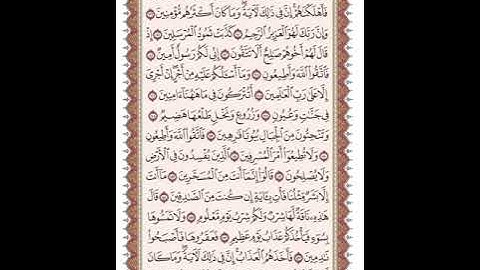 فَأَهْلَكْنَٰهُمْ إِنَّ فِى ذَٰلِكَ لَءَايَةً وَمَا كَانَ أَكْثَرُهُم مُّؤْمِنِينَ ۝
وَإِنَّ رَبَّكَ لَهُوَ ٱلْعَزِيزُ ٱلرَّحِيمُ ۝ كَذَّبَتْ ثَمُودُ ٱلْمُرْسَلِينَ ۝
إِذْ قَالَ لَهُمْ أَخُوهُمْ صَٰلِحٌ أَلَا تَتَّقُونَ ۝ إِنِّى لَكُمْ رَسُولٌ أَمِينٌ ۝
فَٱتَّقُوا۟ ٱللَّهَ وَأَطِيعُونِ ۝ وَمَآ أَسْـَٔلُكُمْ عَلَيْهِ مِنْ أَجْرٍ إِنْ أَجْرِىَ
إِلَّا عَلَىٰ رَبِّ ٱلْعَٰلَمِينَ ۝ أَتُتْرَكُونَ فِى مَا هَٰهُنَآ ءَامِنِينَ ۝
فِى جَنَّٰتٍ وَعُيُونٍ ۝ وَزُرُوعٍ وَنَخْلٍ طَلْعُهَا هَضِيمٌ ۝
وَتَنْحِتُونَ مِنَ ٱلْجِبَالِ بُيُوتًا فَٰرِهِينَ ۝ فَٱتَّقُوا۟ ٱللَّهَ وَأَطِيعُونِ
۝ وَلَا تُطِيعُوٓا۟ أَمْرَ ٱلْمُسْرِفِينَ ۝ ٱلَّذِينَ يُفْسِدُونَ فِى ٱلْأَرْضِ
وَلَا يُصْلِحُونَ ۝ قَالُوٓا۟ إِنَّمَآ أَنتَ مِنَ ٱلْمُسَحَّرِينَ ۝ مَآ أَنتَ
إِلَّا بَشَرٌ مِّثْلُنَا فَأْتِ بِـَٔايَةٍ إِن كُنتَ مِنَ ٱلصَّٰدِقِينَ ۝ قَالَ
هَٰذِهِۦ نَاقَةٌ لَّهَا شِرْبٌ وَلَكُمْ شِرْبُ يَوْمٍ مَّعْلُومٍ ۝ وَلَا تَمَسُّوهَا
بِسُوٓءٍ فَيَأْخُذَكُمْ عَذَابُ يَوْمٍ عَظِيمٍ ۝ فَعَقَرُوهَا فَأَصْبَحُوا۟
نَٰدِمِينَ ۝ فَأَخَذَهُمُ ٱلْعَذَابُ إِنَّ فِى ذَٰلِكَ لَءَايَةً وَمَا كَانَ